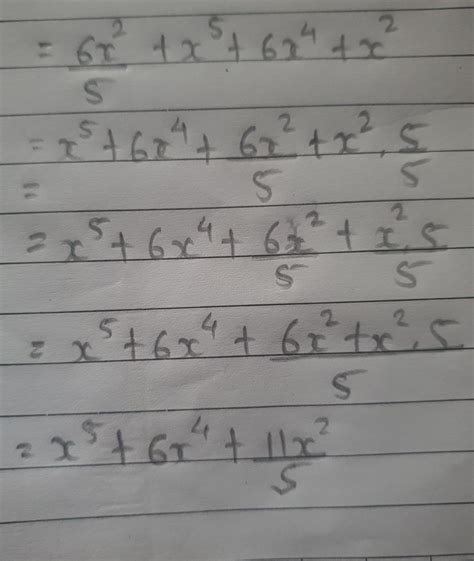 = 6x²/5 + x⁵ + 6x⁴ + x²
= x⁵ + 6x⁴ + 6x²/5 + x² . 5/5
=
= x⁵ + 6x⁴ + 6x²/5 + x² . 5/5
= x⁵ + 6x⁴ + 6x² + x² . 5/5
= x⁵ + 6x⁴ + 11x²/5